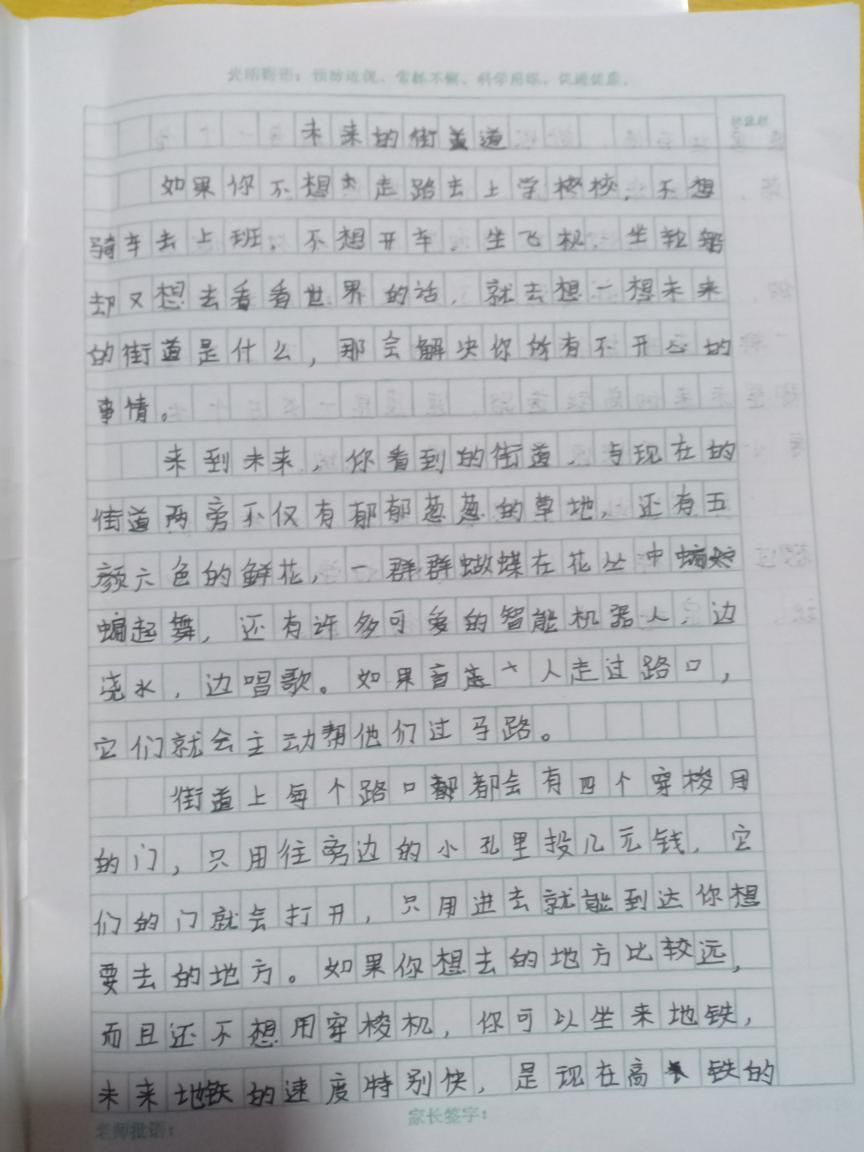 爱眼寄语：预防近视、常抓不懈、科学用眼、促进健康。
未来的街道
如果你不想走路去上学校，不想
骑车去上班，不想开车，坐飞机，坐轮船
却又想去看看世界的话，就去想一想未来
的街道是什么，那会解决你所有不开心的
事情。
来到未来，你看到的街道，与现在的
街道两旁不仅有郁郁葱葱的草地，还有五
颜六色的鲜花，一群群蝴蝶在花丛中
蹁起舞，还有许多可爱的智能机器人，边
浇水，边唱歌。如果盲人走过路口，
它们就会主动帮他们过马路。
街道上每个路口都会有四个穿梭用
的门，只用往旁边的小孔里投几元钱，它
们的门就会打开，只用进去就能到达你想
要去的地方。如果你想去的地方比较远，
而且还不想用穿梭机，你可以坐来地铁，
未来地铁的速度特别快，是现在高铁的
老师批语： 家长签字：